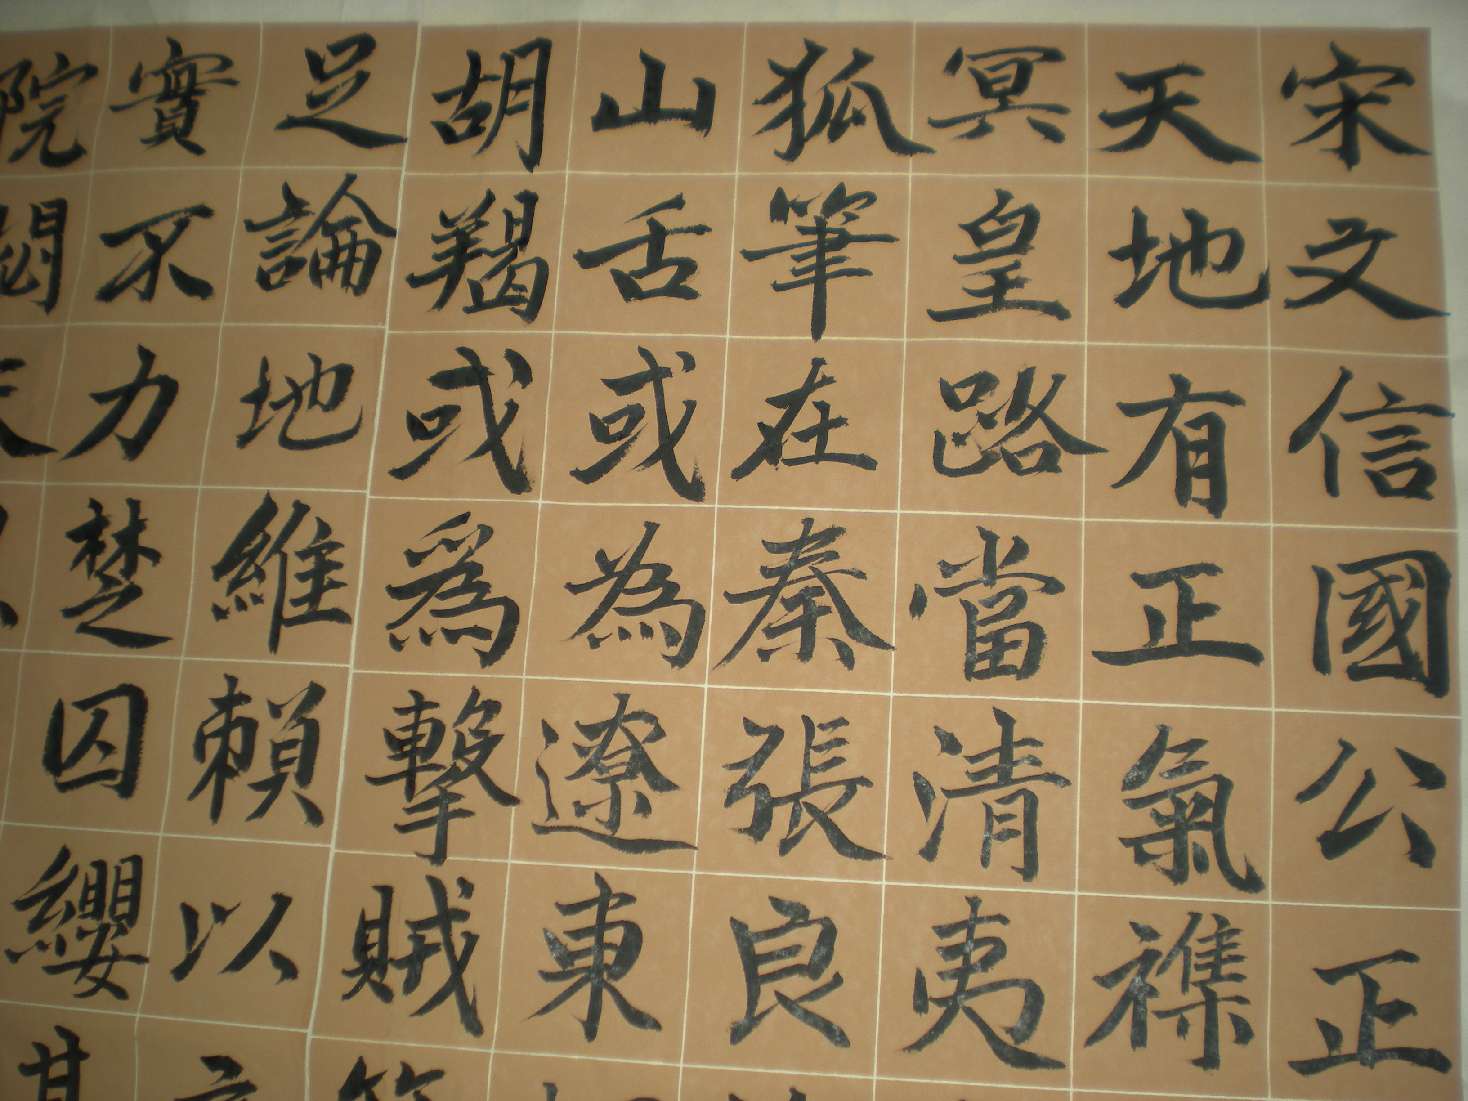 宋文信國公正
天地有正氣襍
冥皇路當清夷
狐筆在秦張良
山舌或為遼東
胡羯或爲擊賊
足論地維賴以
實不力楚囚纓
院閟